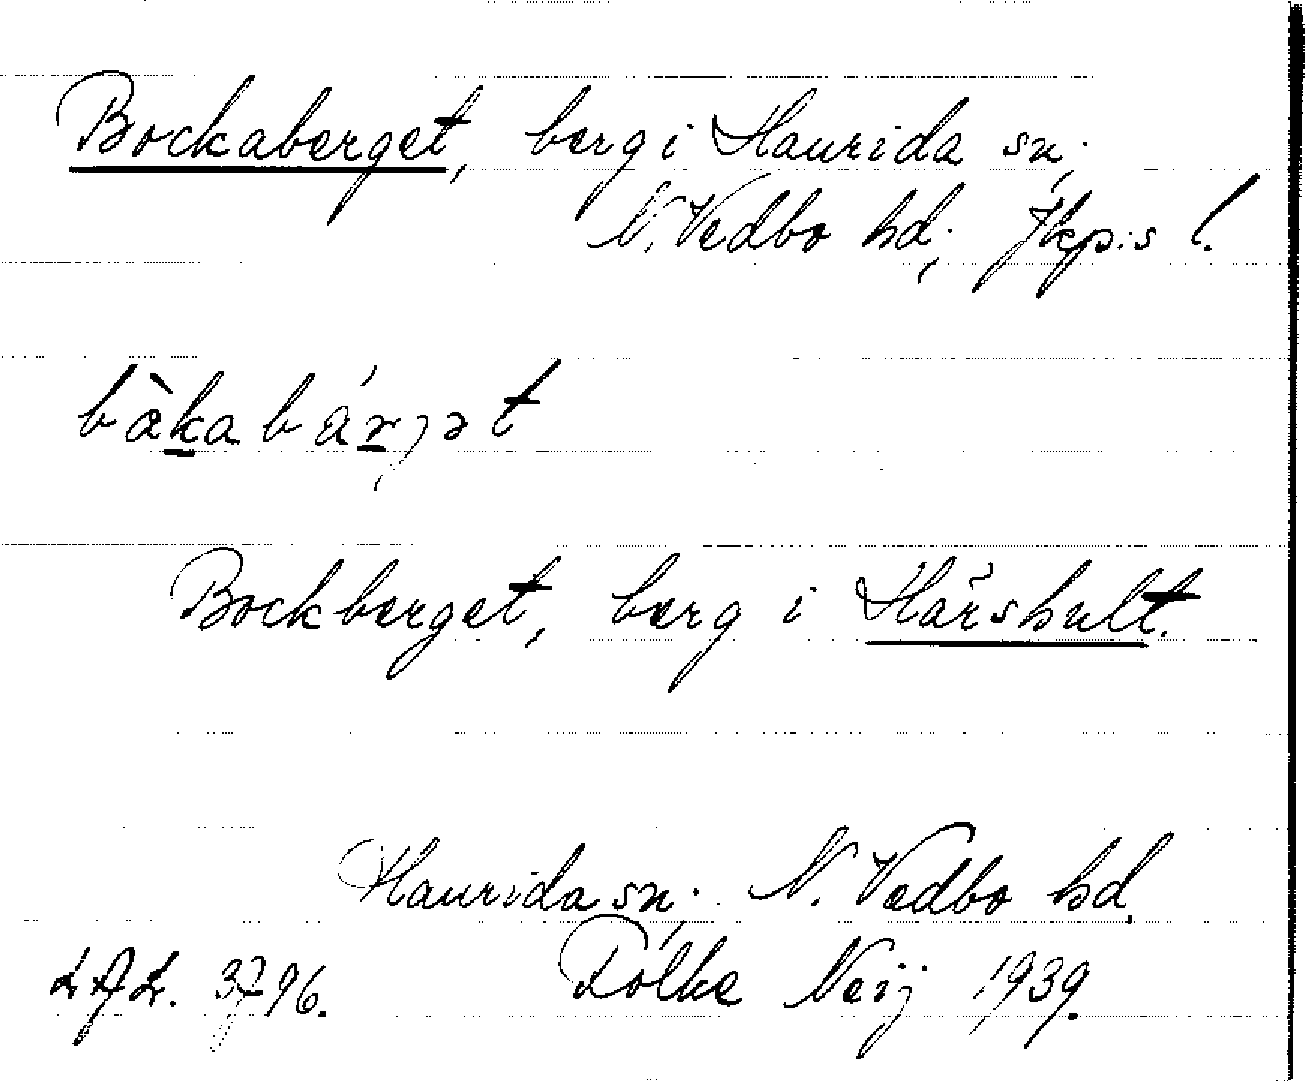 Bockaberget, berg i Haurida sn.
N. Vedbo hd, Jkp:s l.
bàkabárjət
Bockberget, berg i Härshult.
Haurida sn. N. Vedbo hd,
L.A.L. 3796. Fólke Neij 1939.